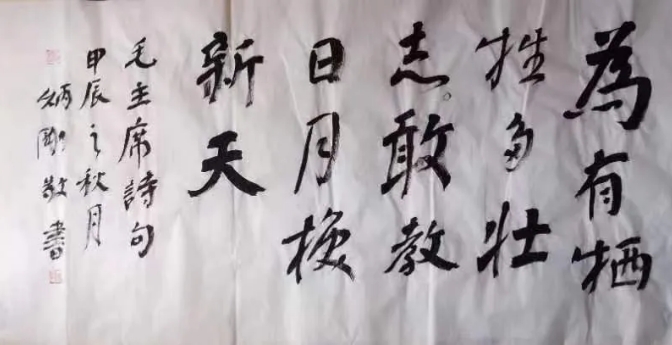 為有牺
牲多壮
志。敢教
日月换
新天
毛主席詩句
甲辰之秋月
炳刚敬書